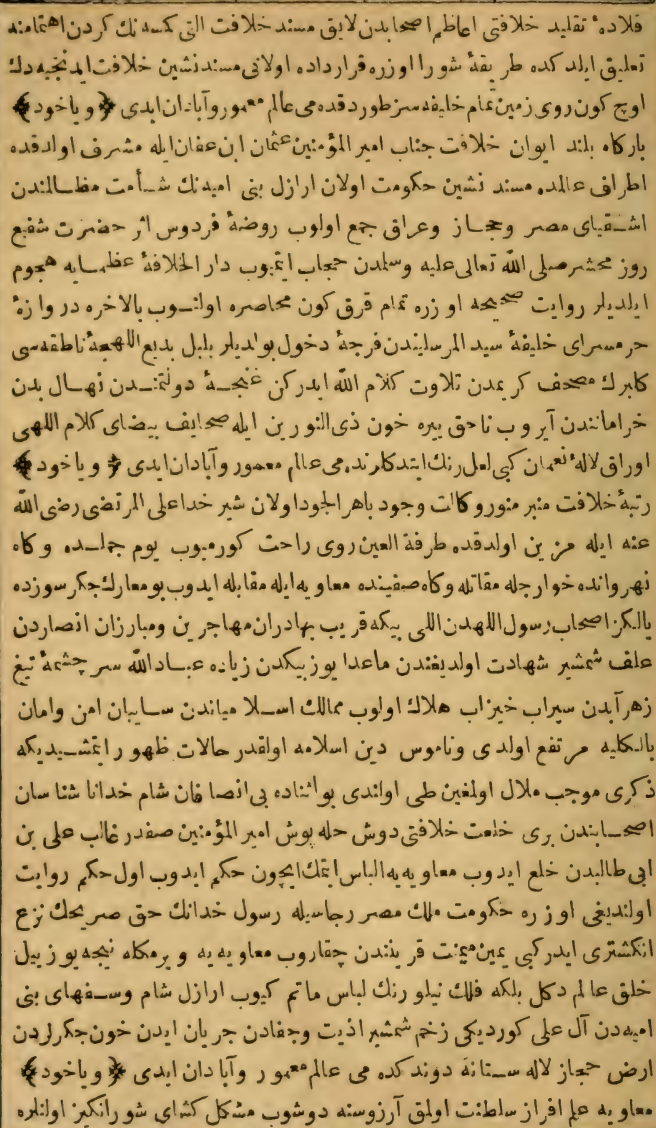 قلادهٔ تقلید خلافتی اعاظم اصحابدن لایق مسند خلافت التی کسه نك کردن اهتمامنه
تعلیق ایلدکده طریقهٔ شورا اوزره قرارداده اولانی مسندنشین خلافت ایدنجیه دك
اوچ کون روی زمین تمام خلیفه سز طوردقده می عالم معمور وآبادان ایدی ﴿ و یاخود ﴾
بارکاه بلند ایوان خلافت جناب امیر المؤمنین عثمان ابن عفان ایله مشرف اولدقده
اطراف عالمده مسند نشین حکومت اولان ارازل بنی امیه نك شأمت مظالمندن
اشقیای مصر وحجاز وعراق جمع اولوب روضهٔ فردوس اثر حضرت شفیع
روز محشر صلی الله تعالی علیه وسلمدن حجاب ایتیوب دار الخلافهٔ عظمایه هجوم
ایلدیلر روایت صحیحه اوزره تمام قرق کون محاصره اولنوب بالاخره دروازهٔ
حرمسرای خلیفهٔ سید المرسلیندن فرجهٔ دخول بولدیلر بلبل بدیع اللهجهٔ ناطقه سی
کلبرك مصحف کریمدن تلاوت کلام الله ایدرکن غنجهٔ دولتندن نهال بدن
خرامانندن آیروب ناحق یره خون ذی النورین ایله صحایف بیضای کلام اللهی
اوراق لالهٔ نعمان کبی لعل رنك ایتدکلرنده می عالم معمور وآبادان ایدی ﴿ و یاخود ﴾
رتبهٔ خلافت منبر منور وکالت وجود باهر الجود اولان شیر خدا علی المرتضی رضی الله
عنه ایله مزین اولدقده طرفة العین روی راحت کورمیوب یوم جملده وکاه
نهروانده خوارجله مقاتله وکاه صفینده معاویه ایله مقابله ایدوب بو معارك جکرسوزده
یالکز اصحاب رسول اللهدن اللی بیکه قریب بهادران مهاجرین ومبارزان انصاردن
علف شمشیر شهادت اولدیغندن ماعدا یوز بیکدن زیاده عباد الله سرچشمهٔ تیغ
زهرآبدن سیراب خیزاب هلاك اولوب ممالك اسلامیاندن سایبان امن وامان
بالکلیه مرتفع اولدی وناموس دین اسلامه اولقدر حالات ظهور ایتمشیدیکه
ذکری موجب ملال اولمغین طی اولندی بو اثناده بی انصافان شام خدانا شناسان
اصحابندن بری خلعت خلافتی دوش حله پوش امیر المؤمنین صفدر غالب علی بن
ابی طالبدن خلع ایدوب معاویه یه الباس ایتمك ایچون حکم ایدوب اول حکم روایت
اولندیغی اوزره حکومت ملك مصر رجاسیله رسول خدانك حق صریحك نزع
انکشتری ایدرکبی یمین میمنت قریننندن چقاروب معاویه یه ویرمکله نیجه یوز ییل
خلق عالم دکل بلکه فلك نیلورنك لباس ماتم کیوب ارازل شام وسفهای بنی
امیه دن آل علی کوردیکی زخم شمشیر اذیت وجفادن جریان ایدن خون جکرلردن
ارض حجاز لاله ستانه دوندکده می عالم معمور وآبادان ایدی ﴿ و یاخود ﴾
معاویه علم افراز سلطنت اولمق آرزوسنه دوشوب مشکل کشای شورانکیز اولنلره